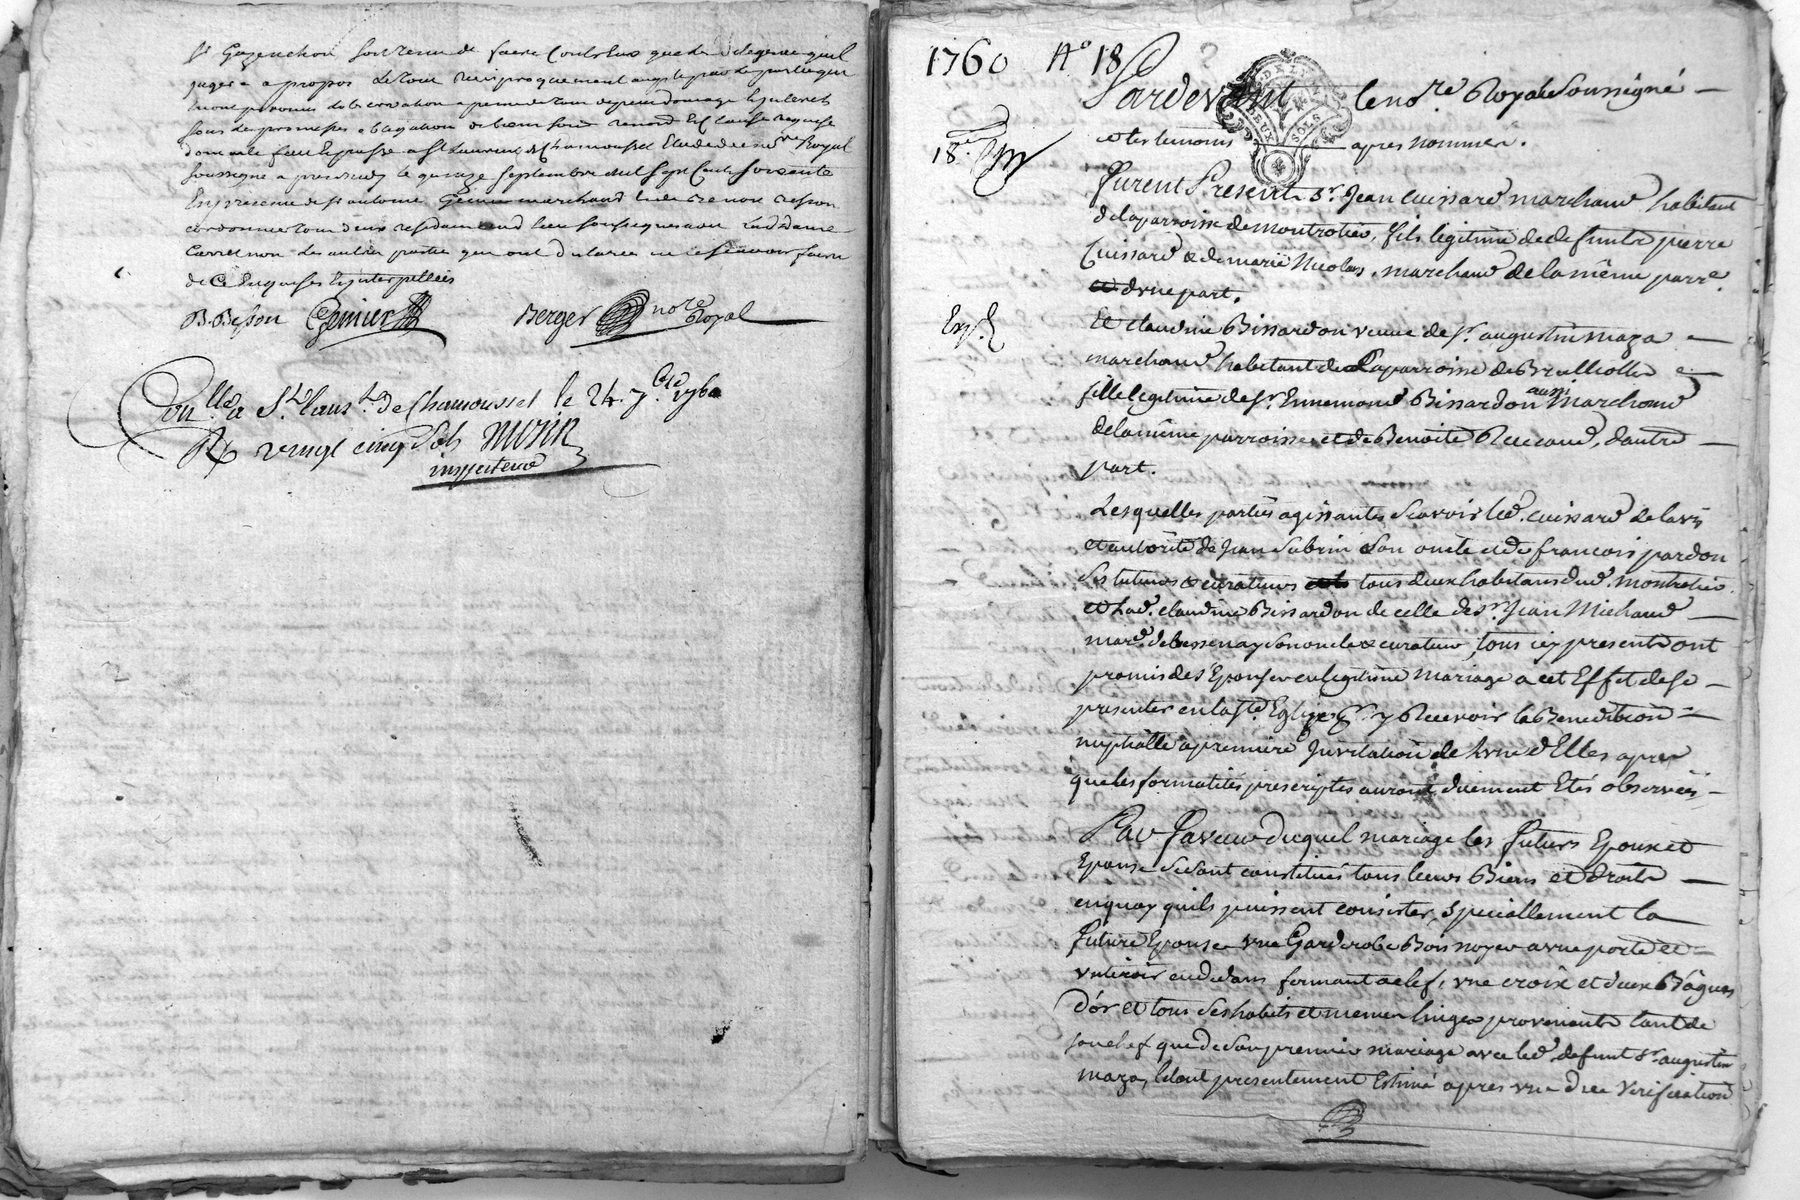 Sr Gazanchon sera tenu de faire contre eux que des diligences qu'il
jugera a propos le tout reciproquement accepté par les parties qui
l'ont promis observation a peine de tous depens domages interets
sous les promesses obligation de biens soumis renond et clause requise
dont acte fait et passé a St Laurent de Chamousset Etude du no.re Royal
soussigné apres midy le quinze septembre mil sept cents soixante
En presence de Sr antoine Genier marchand et de benoit Besson
cordonnier tous deux residants aud lieu soussignes avec lad dame
Carret non les autres parties qui ont declaré ne le scavoir faire
de ce Enquises et interpellées
B. Besson Genier Berger no.re Royal
Con.llé a St. Laur.t de Chamousset le 24. 7.bre 1760
R vingt cinq sols Morin
inspecteur
1760 N.o 18
Pardevant le no.re Royal Soussigné
DE LYON
DEUX SOLS
et les temoins apres nommés.
18.e
Furent Presents Sr. Jean Cuissard marchand habitant
de la parroisse de montrotier, fils legitime de defunt pierre
Cuissard & de marie Nicolas, marchand de la même parr.e
d'une part.
Exp.
Et claudine Bissardon veuve de Sr. augustin maza
marchand habitant de la parroisse de Brullioles
fille legitime de Sr. Ennemond Bissardon aussi marchand
de la même parroisse et de Benoite Reccand, d'autre
part.
Lesquelles parties agissantes Scavoir led. cuissard de lavis
et autorité de Jean Subrin Son oncle et de francois pardon
Ses tuteurs & curateurs tous deux habitans dud. montrotier
et lad. claudine Bissardon de celle de Sr. Jean Michaud
mar.d de bessenay son oncle & curateur, tous icy presents ont
promis de S'Epouser en legitime mariage a cet Effet de se
presenter en la S.te Eglise pr. y Recevoir la Benediction
nuptialle a premiere Invitation de l'une d'Elles apres
que les formalités prescriptes auront duement Etés observées
En Faveur duquel mariage les futurs Epoux et
Epouse se sont constitués tous leurs Biens et droits
en quoy quils puissent consister, specialement la
future Epouse une Garderobe Bois noyer a une porte et
un tiroir en dedans fermant a clef, une croix et deux Bâgues
D'or et tous Ses habits et menu linge provenants tant de
son chef que de Son premier mariage avec led. defunt Sr. augustin
maza, le tout presentement Estimé apres une due verification